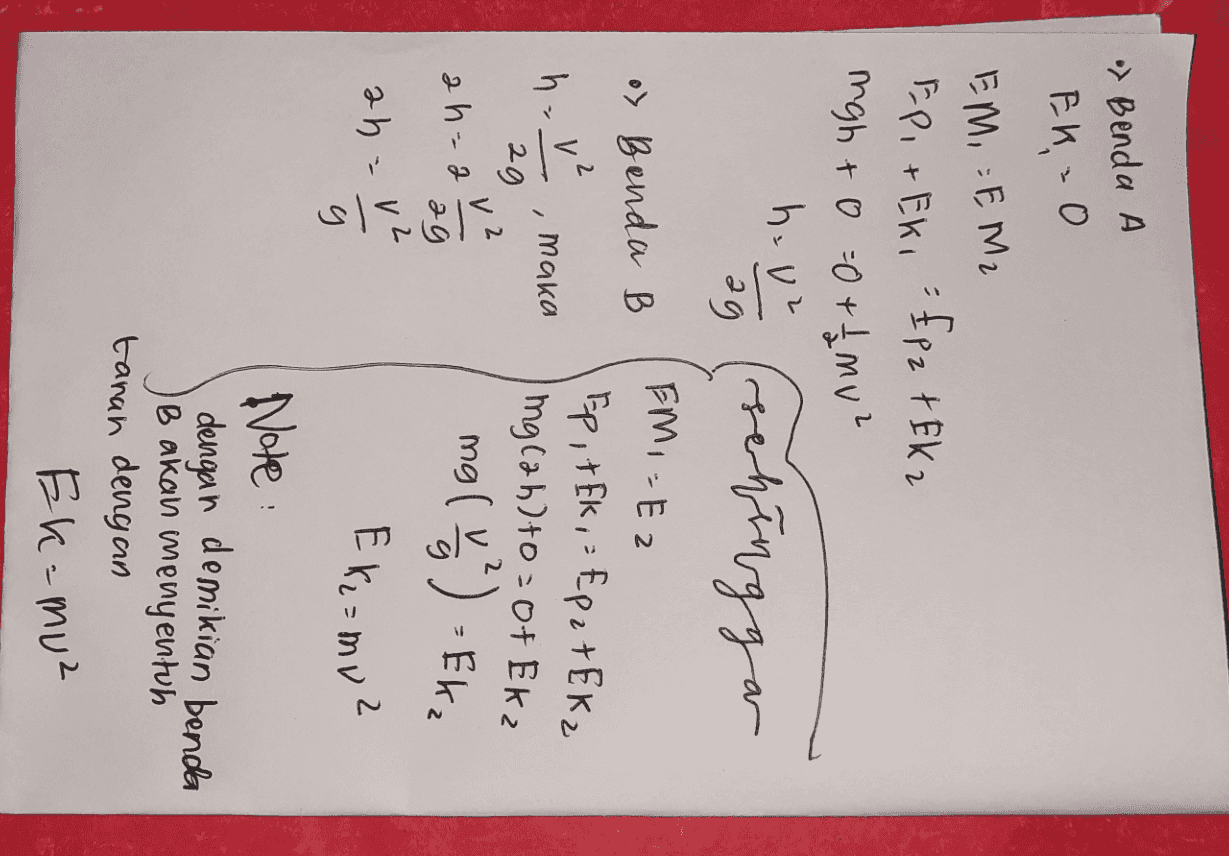 •> Benda A
Ek₁ = 0
EM₁ = EM₂
Ep₁ + Ek₁ = Ep₂ + Ek₂
mgh + 0 = 0 + ½mv²
h = v²/2g
•> Benda B
h = v²/2g, maka
2h = 2 v²/2g
2h = v²/g
sehingga
EM₁ = E₂
Ep₁ + Ek₁ = Ep₂ + Ek₂
mg(2h) + 0 = 0 + Ek₂
mg(v²/g) = Ek₂
Ek₂ = mv²
Note :
dengan demikian benda
B akan menyentuh
tanah dengan
Ek = mv²